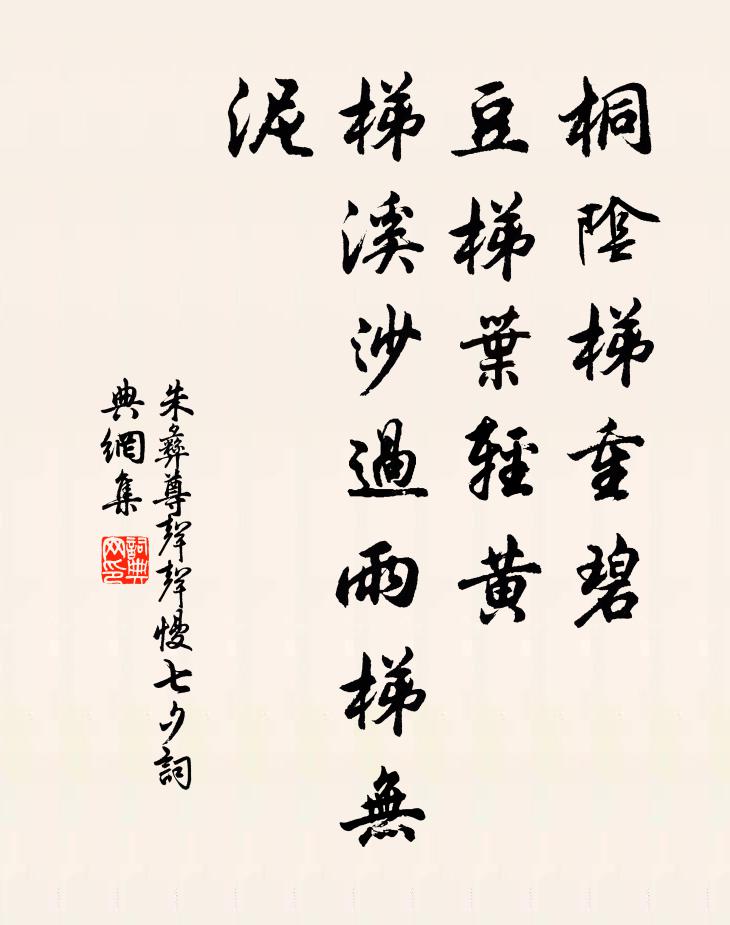 桐陰梯重碧
豆梯葉輕黃
梯溪沙過雨梯無
泥
朱彝尊聲聲慢七夕詞
典網集
詞典
网印